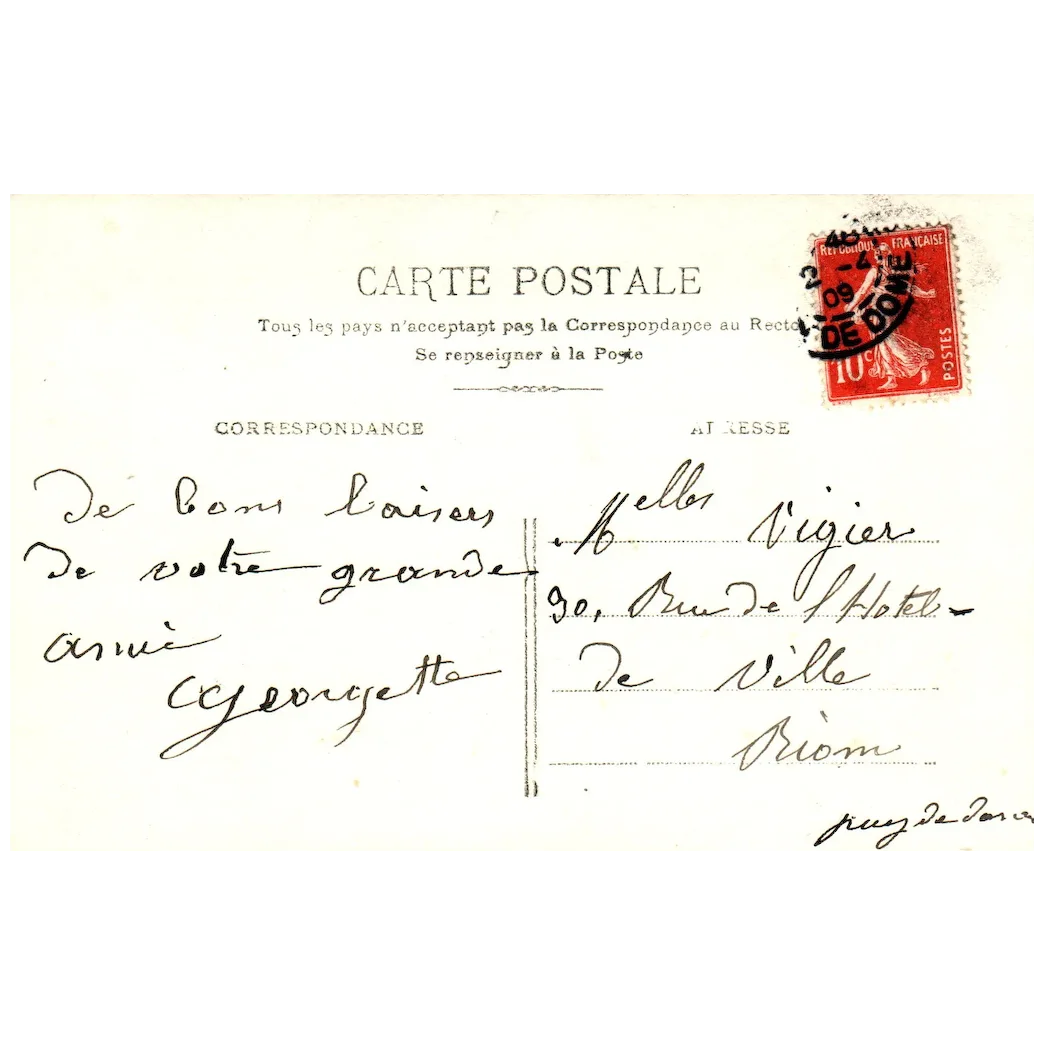 CARTE POSTALE
Tous les pays n'acceptant pas la Correspondance au Recto
Se renseigner à la Poste
RÉPUBLIQUE FRANÇAISE
10c POSTES
-4
09
DE DOME
CORRESPONDANCE
ADRESSE
De bons baisers
de votre grande
amie
Georgette
Melles Vigier
30, Rue de l'Hotel-
de Ville
Riom
puy de dome